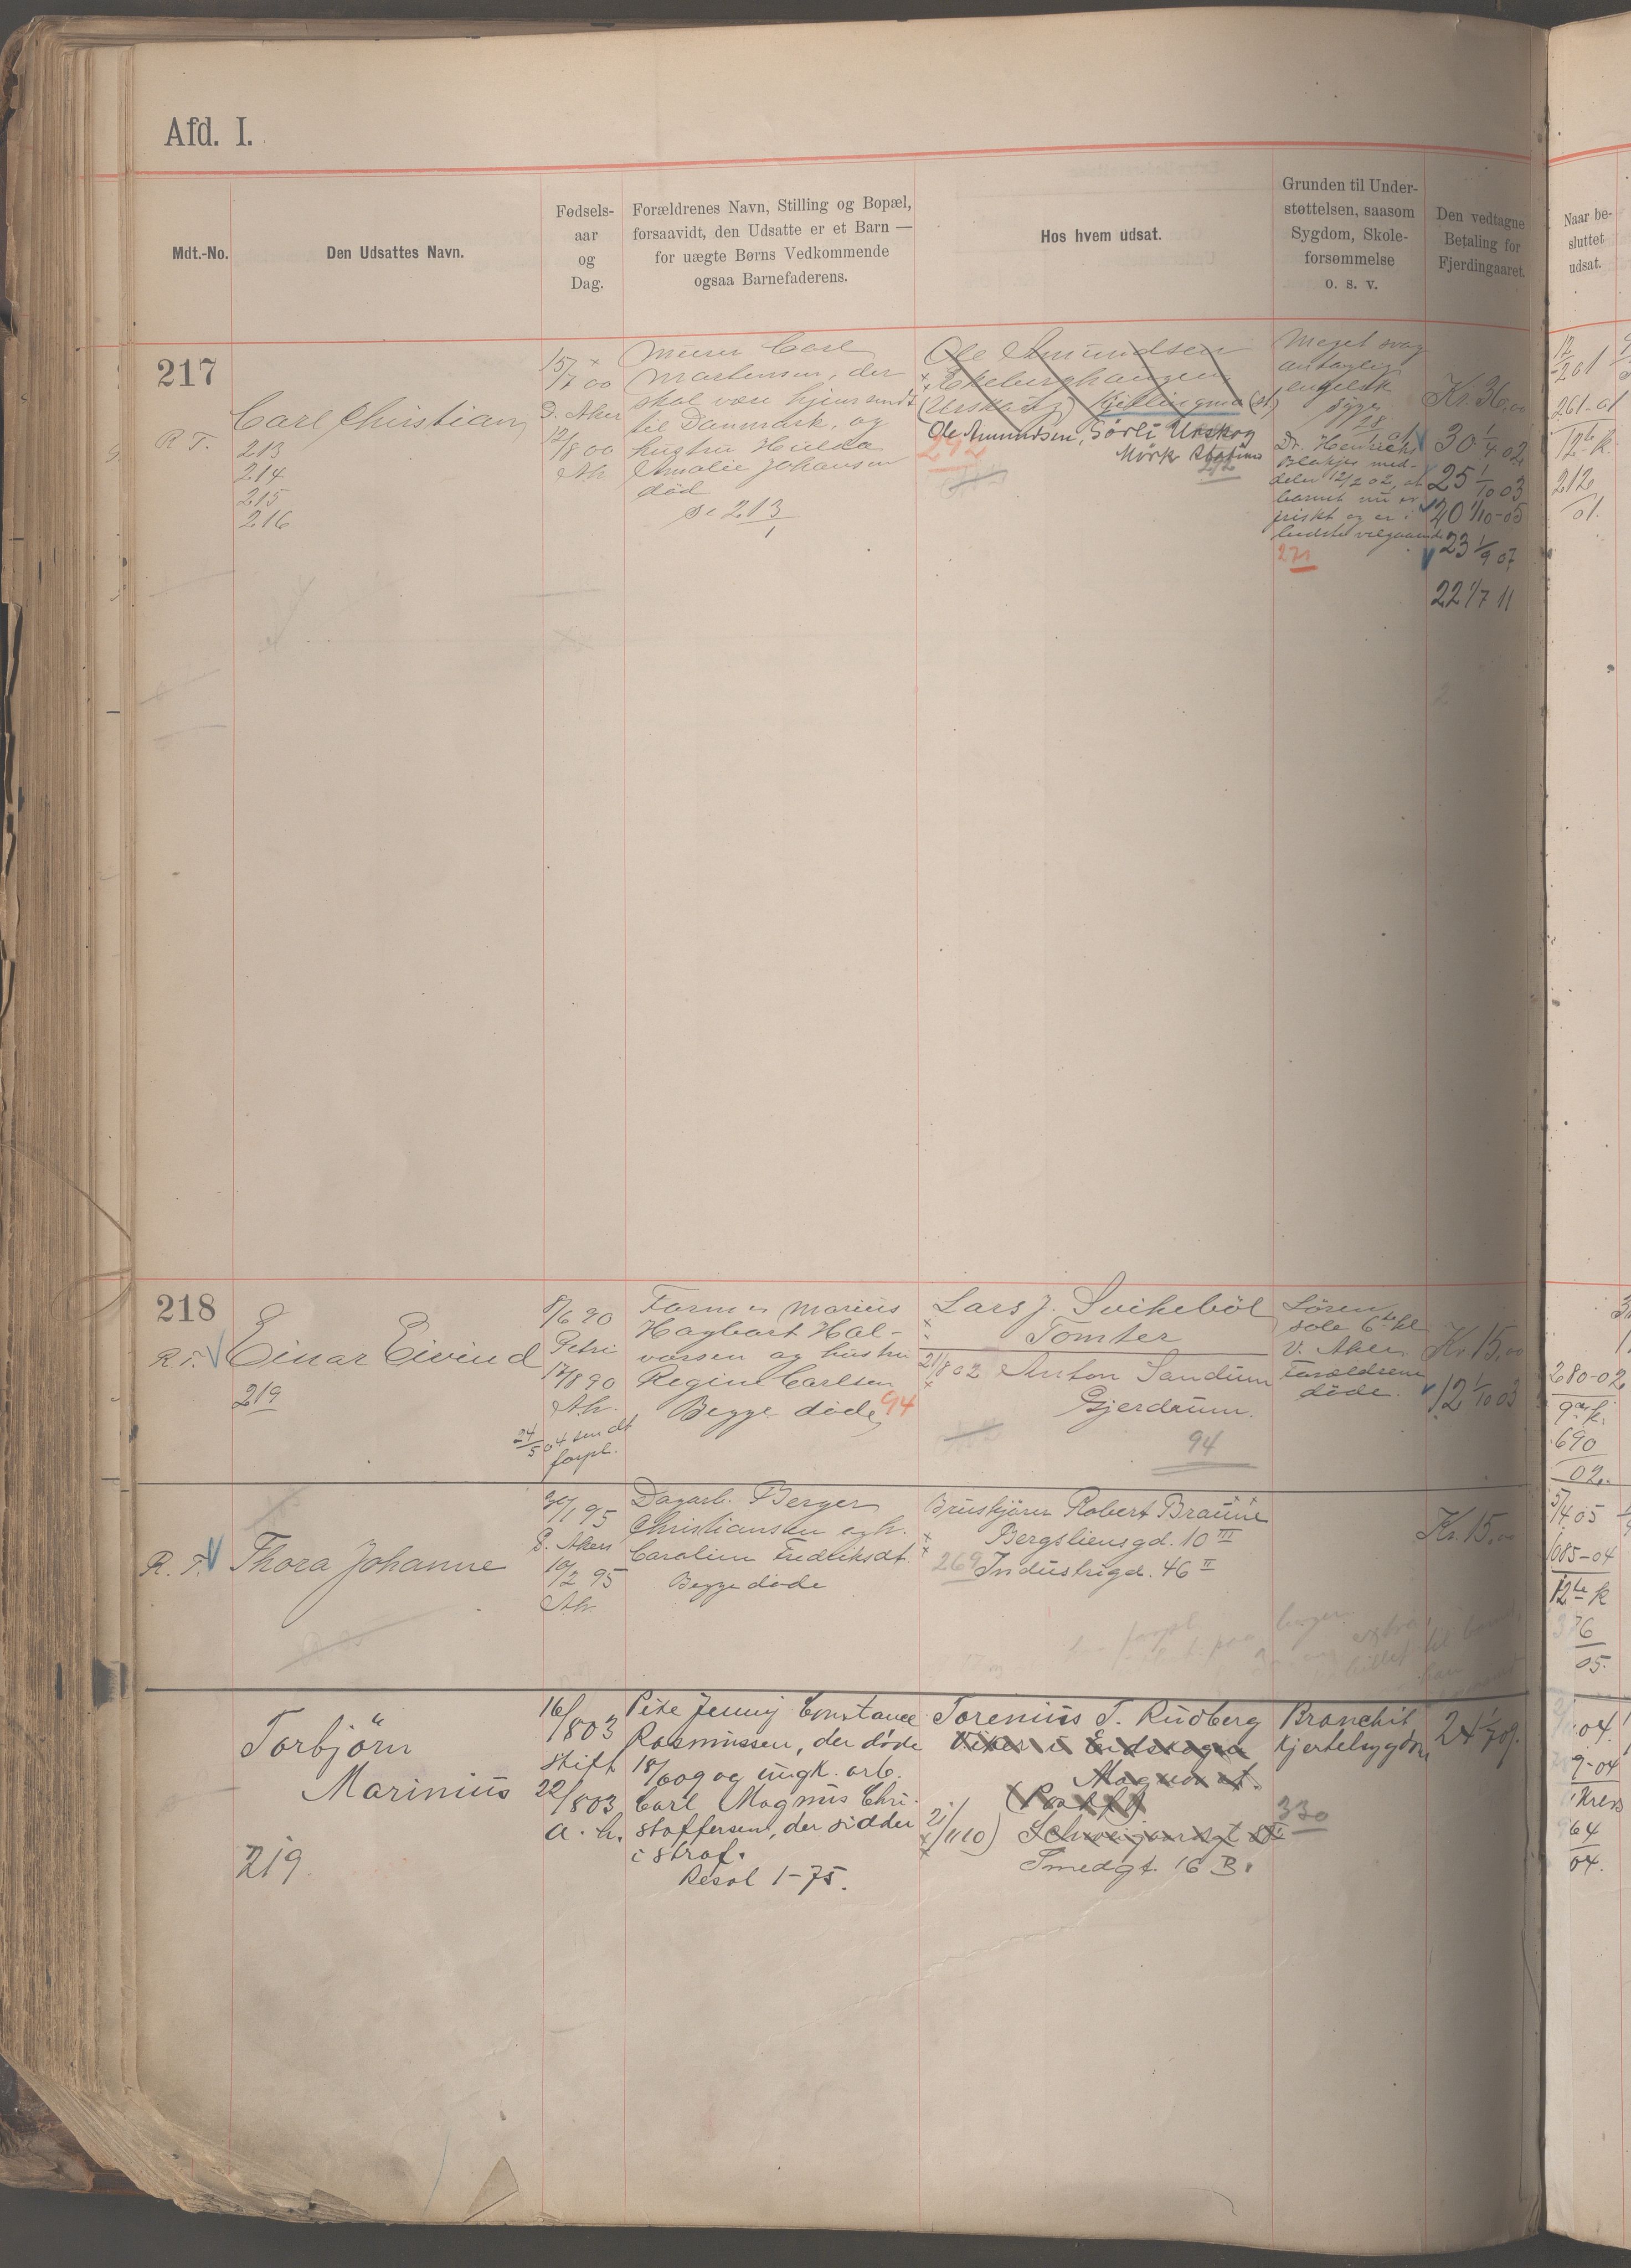 Afd. I.
Mdt.-No.
Den Udsattes Navn.
Fødsels-
aar
og
Dag.
Forældrenes Navn, Stilling og Bopæl,
forsaavidt, den Udsatte er et Barn —
for uægte Børns Vedkommende
ogsaa Barnefaderens.
Hos hvem udsat.
Grunden til Under-
støttelsen, saasom
Sygdom, Skole-
forsømmelse
o. s. v.
Den vedtagne
Betaling for
Fjerdingaaret.
Naar be-
sluttet
udsat.
217
R T.
Carl Christian
213
214
215
216
15/7 00
Ø. Aker
12/8 00
Ah
Murer Carl
Martensen, der
skal være hjemsendt
til Danmark, og
hustru Hulda
Amalie Johansen
død
se 213
1
Ole Amundsen
Ekeberghaugen
(Urskog)
Ole Amundsen, Sörli Urskog
Mörk Station
292
212
Meget svag
antagelig
engelsk
syge
Dr. Henrichs
Blakjer med-
deler 12/2 02, at
barnet nu er
friskt og er i
bedste velgaaende
271
Kr. 36,00
30 1/4 02
25 1/10 03
20 1/10-05
23 1/9 07
22 1/7 11
261-01
12te k.
212
01.
218
R. T.
Einar Eivind
219
8/6 90
Petri
17/8 90
Ah.
24/5 04 sendt
forpl.
Form er Marius
Hagbart Hal-
vorsen og hustru
Regine Carlsen
Begge døde
94
Lars J. Svikeböl
Tomter
21/8 02 Anton Sandum
Gjerdrum.
94
Sören
sole 6te kl
V. Aker.
Foreldrene
døde.
Kr. 15,00
12 1/10 03
280-02
9de k.
690
02.
R. T.
Thora Johanne
30/1 95
Ø. Akers
10/2 95
Ah
Dagarb. Berger
Christiansen og h.
Caroline Fredriksdt.
Begge døde
Bruskjörer Robert Braüne
Bergsliensgd. 10 III
269 Industrigd. 46 II
Kr. 15,00
5/4 05
1085-04
12te k
376
05.
Torbjörn
Marinius
219.
16/803
Stift
22/803
a. h.
Pike Jenny Constance
Rasmussen, der døde
18/609 og ungk. arb.
Carl Magnus Chri-
stoffersen, der sidder
i straf.
Resol 1-75.
Torenius T. Rudberg
Viker i Eidskogen
Magnor st.
2/1110) Schweigaardsgt
Smedgt. 16 B.
Bronchit
kjertelsygdom
330
24 1/7 09.
04.
9-04
64
04.